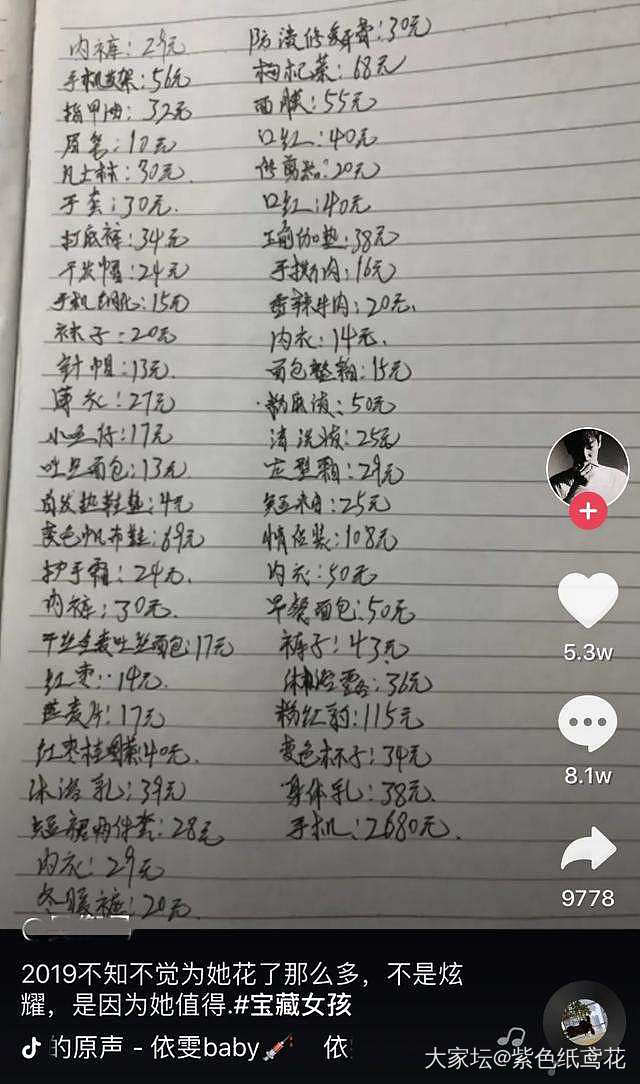 内裤：29元
手机支架：56元
指甲油：32元
眉笔：10元
凡士林：30元
手套：30元.
打底裤：34元
干发帽：24元
手机：15元
袜子：20元
针帽：13元.
薄衣：27元
小鱼仔：17元
吐司面包：13元
自发热鞋垫：4元
变色帆布鞋：69元
护手霜：24元.
内裤：30元.
全麦吐司面包：17元
红枣：14元.
燕麦片：17元
红枣桂圆茶40元.
沐浴乳：39元
短裙两件套：28元
内衣：29元
冬暖裤：20元.
防冻修复膏：30元
枸杞茶：68元
面膜：55元
口红：40元
修剪器：20元
口红：40元
瑜伽垫：38元
手撕肉：16元
香辣牛肉：20元.
内衣：14元.
面包整箱：15元
50元
清洗液：25元
定型霜：29元
25元
情侣装：108元
内衣：50元
早餐面包：50元
裤子：43元
沐浴露：36元
粉红豹：115元
变色杯子：34元
身体乳：38元.
手机：2680元.
5.3w
8.1w
9778
2019不知不觉为她花了那么多，不是炫
耀，是因为她值得.#宝藏女孩
的原声 - 依雯baby💉 依
大家坛@紫色纸鸢花